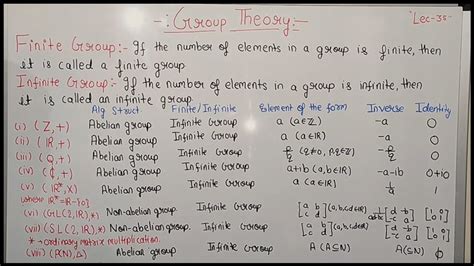 -: Group Theory :-
Lec-38
Finite Group:- If the number of elements in a group is finite, then
it is called a finite group
Infinite Group:- If the number of elements in a group is infinite, then
it is called an infinite group
Alg Struct Finite/Infinite Element of the form Inverse Identity
(i) (Z,+) Abelian group Infinite Group a (a∈Z) -a 0
(ii) (IR,+) Abelian group Infinite Group a (a∈IR) -a 0
(iii) (Q,+) Abelian group Infinite Group p/q (q≠0, p,q∈Z) -p/q 0
(iv) (₵,+) Abelian group Infinite Group a+ib (a,b∈IR) -a-ib 0+i0
(v) (IR*,X) Abelian group Infinite Group a (a∈IR) 1/a 1
[where IR*=IR-{0}]
(vi) (GL(2,IR),*) Non-abelian group Infinite Group [a b c d] (a,b,c,d∈IR) [d -b -c a] [1 0 0 1]
(vii) (SL(2,IR),*) Non-abelian group. Infinite Group [a b c d] (a,b,c,d∈IR) [d -b -c a] [1 0 0 1]
* → ordinary matrix multiplication.
(viii) (P(N),Δ) Abelian group Infinite Group A (A⊆N) A(A⊆N) ϕ